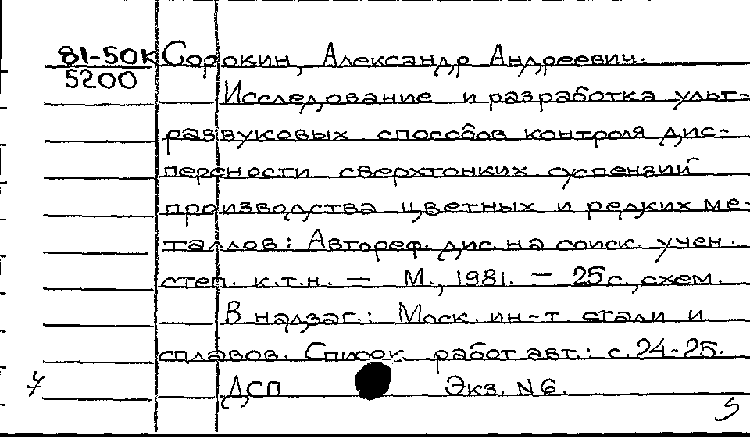 81-50К Сорокин, Александр Андреевич.
5200
Исследование и разработка ульт-
развуковых способов контроля дис-
персности сверхтонких суспензий
производства цветных и редких ме-
таллов: Автореф. дис. на соиск. учен.
степ. к.т.н. — М., 1981. — 25 с., схем.
В надзаг.: Моск. ин-т стали и
сплавов. Список работ авт.: с. 24-25.
ДСП Экз. N 6.